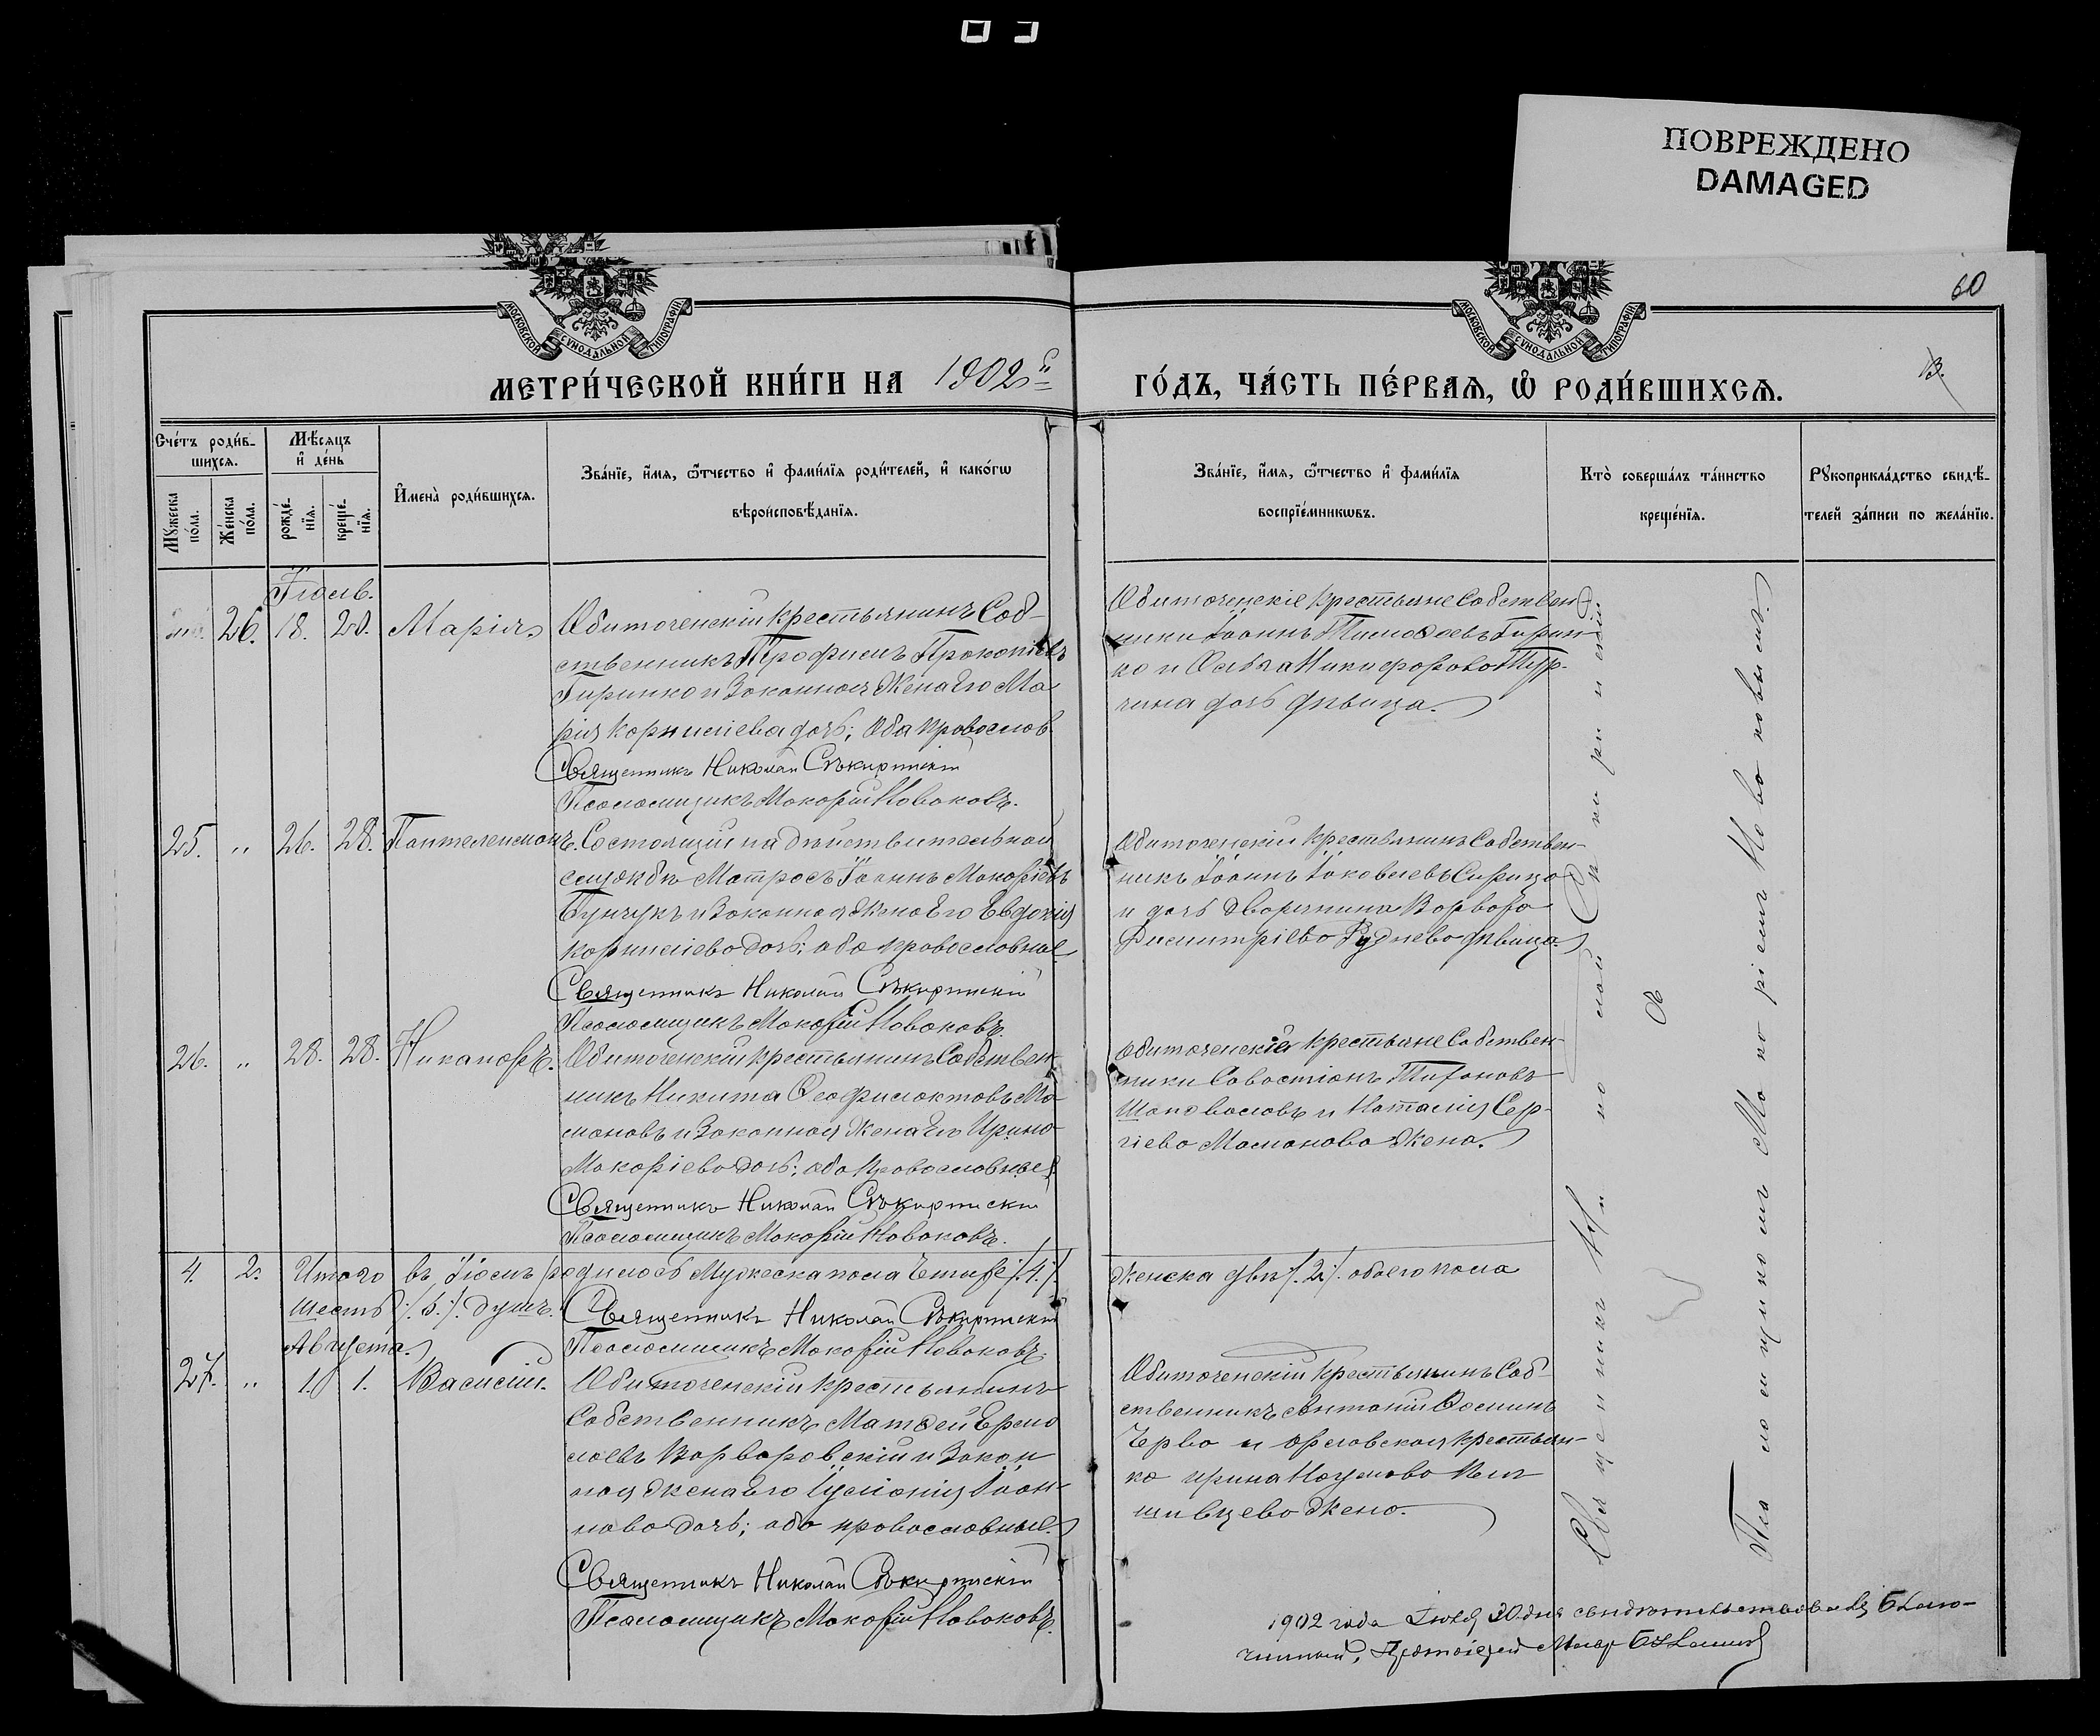 ПОВРЕЖДЕНО
DAMAGED
60
МОСКОВСКОЙ СѴНОДАЛЬНОЙ ТИПОГРАФІИ.
МОСКОВСКОЙ СѴНОДАЛЬНОЙ ТИПОГРАФІИ.
МЕТРИ́ЧЕСКОЙ КНИ́ГИ НА 1902й
ГО́ДЪ, ЧА́СТЬ ПЕ́РВАЯ, Ѡ҆ РОДИ́ВШИХСЯ.
Сче́тъ роди́в-
шихся.
Мѣ́сяцъ
и҆ де́нь
Мꙋ́жеска
по́ла.
Же́нска
по́ла.
рожде́-
нїя.
креще́-
нїя.
И҆мена̀ роди́вшихся.
Зва́нїе, и҆́мя, ѻ҆́тчество и҆ фами́лїя роди́телей, и҆ како́гѡ
вѣроисповѣ́данїя.
Зва́нїе, и҆́мя, ѻ҆́тчество и҆ фами́лїя
воспрїе́мникѡвъ.
Кто̀ соверша́лъ та́инство
креще́нїя.
Рꙋкоприкла́дство свидѣ́-
телей за́писи по жела́нїю.
Іюль.
26. 18. 20. Марія.
Обиточенскій крестьянинъ Соб-
ственникъ Трофимъ Прокопіевъ
Гиринко и Законная Жена Его Ма-
рія Корниліева дочь; Оба правослов
Священникъ Николай Сѣкиринскій
Псаломщикъ Макарій Новаковъ.
Обиточенскіе Крестьяне Собствен-
ники Іоаннъ Тимоѳеевъ Гирин-
ко и Ольга Никифорова Тур-
чина дочь дѣвица.
25. " 26. 28. Пантелеимонъ.
Состоящій на дѣйствительной
службѣ Матросъ Іоаннъ Макаріевъ
Бунчукъ и Законная Жена Его Евдокія
Корниліева дочь; оба православные
Священникъ Николай Сѣкиринскій
Псаломщикъ Макарій Новаковъ.
Обиточенскій Крестьянинъ Собствен-
никъ Іоаннъ Іаковлевъ Сирица
и дочь Дворянина Варвара
Димитріева Руднева дѣвица.
26. " 28. 28. Никаноръ.
Обиточенскій крестьянинъ Собствен-
никъ Никита Ѳеофилактовъ Ма-
мановъ и Законная Жена Его Ирина
Макаріева дочь; оба Православные
Священникъ Николай Сѣкиринскій
Псаломщикъ Макарій Новаковъ.
Обиточенскіе Крестьяне Собствен-
ники Савостіонъ Тихоновъ
Шаповаловъ и Наталія Сер-
гіева Маманова Жена.
4. 2. Итого въ Іюлѣ родилось Мужеска пола Четыре /.4./.
женска двѣ /.2./. обоего пола
Шесть /.6./. душъ.
Священникъ Николай Сѣкиринскій
Псаломщикъ Макарій Новаковъ.
Августа.
27. " 1. 1. Василій.
Обиточенскій крестьянинъ
Собственникъ Матѳей Ермо
лаевъ Варваровскій и Закон
ная Жена Его Іуліанія Іоан-
нова дочь; оба православные.
Священникъ Николай Сѣкиринскій
Псаломщикъ Макарій Новаковъ.
Обиточенскій Крестьянинъ Соб-
ственникъ Антоній Ѳоминъ
Черво и Орловская крестьян-
ка Ирина Наумова
Жена.
Священникъ Николай Сѣкиринскій
Псаломщикомъ Макаріемъ Новаковымъ.
1902 года 30 дня свидѣтельствовалъ Благо-
чинный, Протоіерей